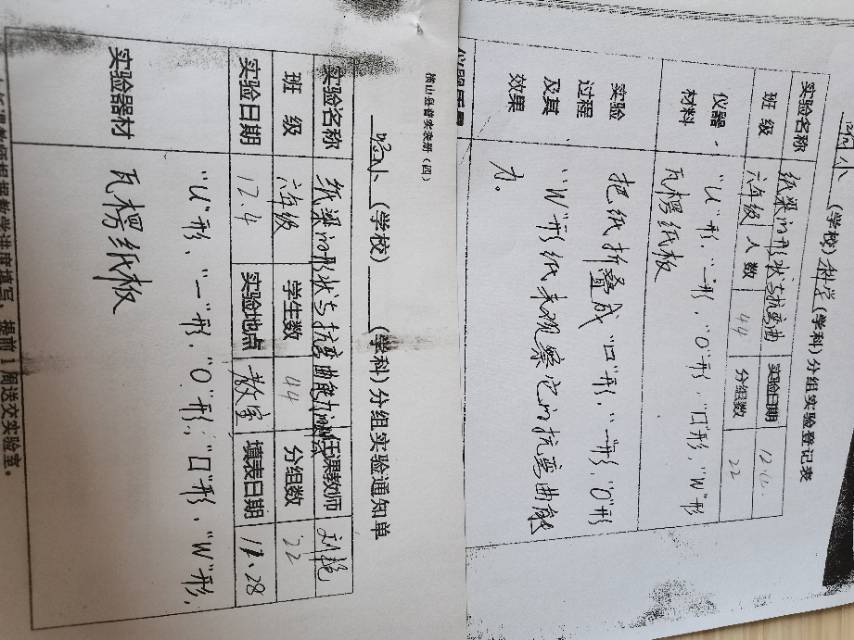 (学校)科学(学科)分组实验登记表
实验名称 纸梁的形状与抗弯曲 实验日期
班级 六年级 人数 44 分组数 22
仪器、材料 "U"形、"一"形、"O"形、"口"形、"W"形
瓦楞纸板
实验过程及其效果 把纸折叠成"口"形、"一"形、"O"形
"W"形纸来观察它的抗弯曲能
力。
(四)
(学校) (学科)分组实验通知单
实验名称 纸梁的形状与抗弯曲能力 任课教师
班级 六年级 学生数 44 分组数 22
实验日期 12.4 实验地点 教室 填表日期 11.28
实验器材 "U"形、"一"形、"O"形、"口"形、"W"形、
瓦楞纸板
教师根据教学进度填写,提前1周送交实验室。